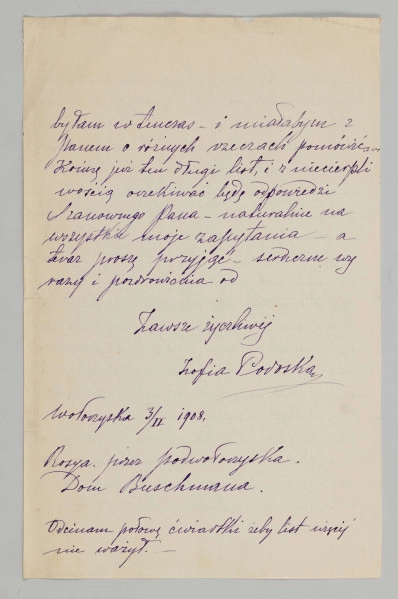 byłam w tenczas – i miałabym z
panem o różnych rzeczach pomówić –
Kończę już ten długi list, i z niecierpli
wością oczekiwać będę odpowiedzi
Szanownego Pana – naturalnie na
wszystkie moje zapytania – a
teraz proszę przyjąć – serdeczne wy
razy i pozdrowienia od
Zawsze życzliwej
Zofia Podoska
Wołoczyska 3/II 1908.
Rosya. przez Podwołoczyska.
Dom Buschmana.
Odcinam połowę ćwiartki żeby list więcej
nie ważył. –